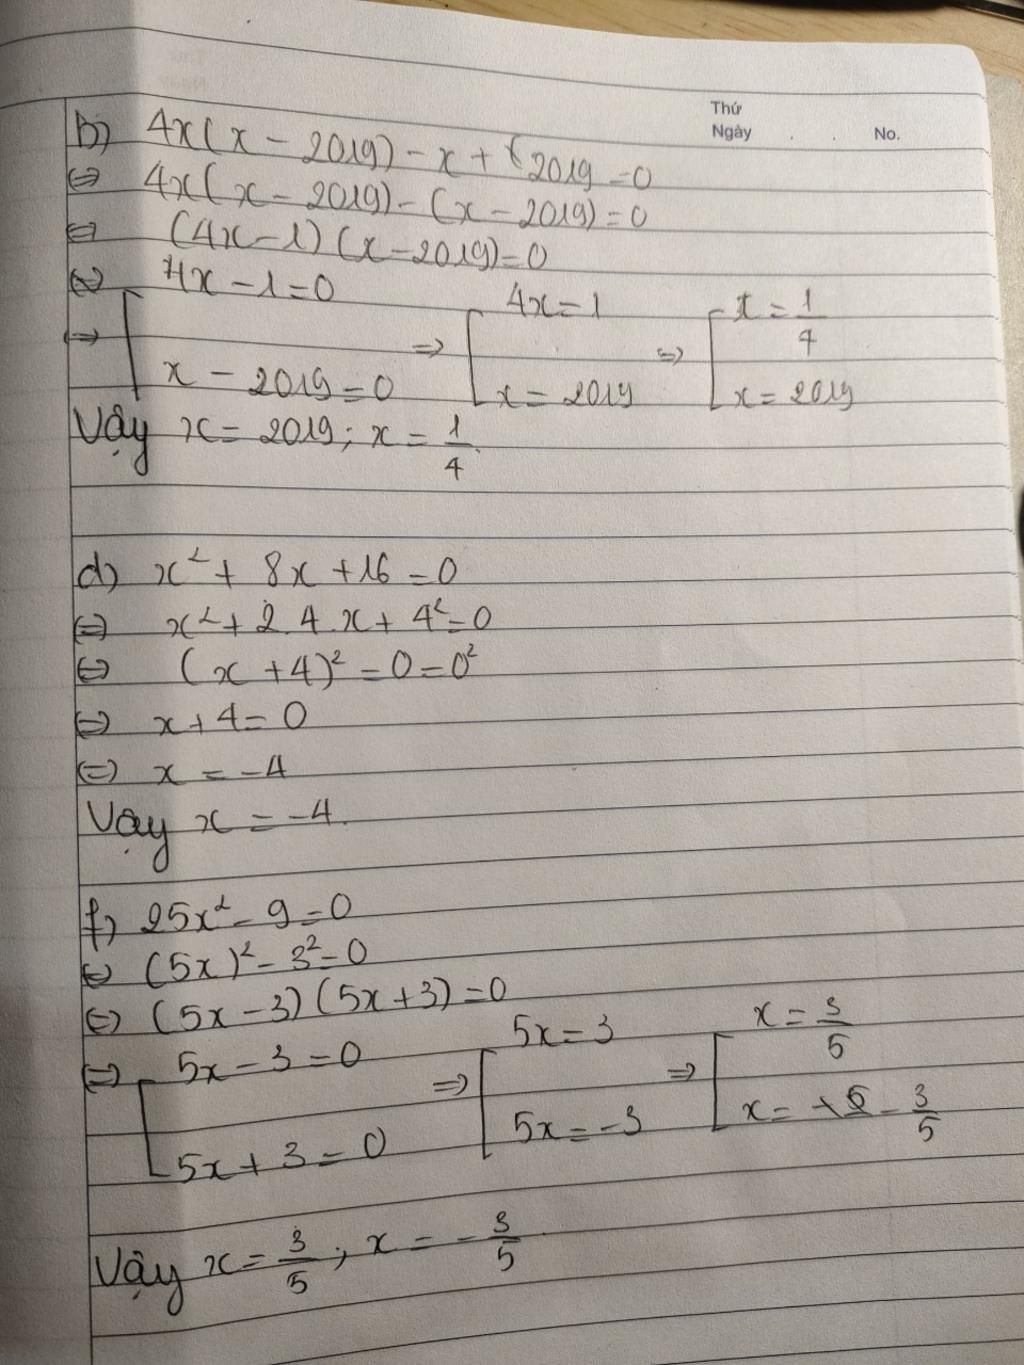 Thứ
Ngày . . No.
b) 4x(x - 2019) - x + 2019 = 0
⇔ 4x(x - 2019) - (x - 2019) = 0
⇔ (4x - 1)(x - 2019) = 0
⇔ 4x - 1 = 0 4x = 1 x = 1/4
⇒ [ ⇒ [ ⇒ [
x - 2019 = 0 x = 2019 x = 2019
Vậy x = 2019; x = 1/4.
d) x² + 8x + 16 = 0
⇔ x² + 2.4.x + 4² = 0
⇔ (x + 4)² = 0 = 0²
⇔ x + 4 = 0
⇔ x = -4
Vậy x = -4.
f) 25x² - 9 = 0
⇔ (5x)² - 3² = 0
⇔ (5x - 3)(5x + 3) = 0
⇒ [ 5x - 3 = 0 ⇒ [ 5x = 3 ⇒ [ x = 3/5
5x + 3 = 0 5x = -3 x = - 3/5
Vậy x = 3/5; x = - 3/5